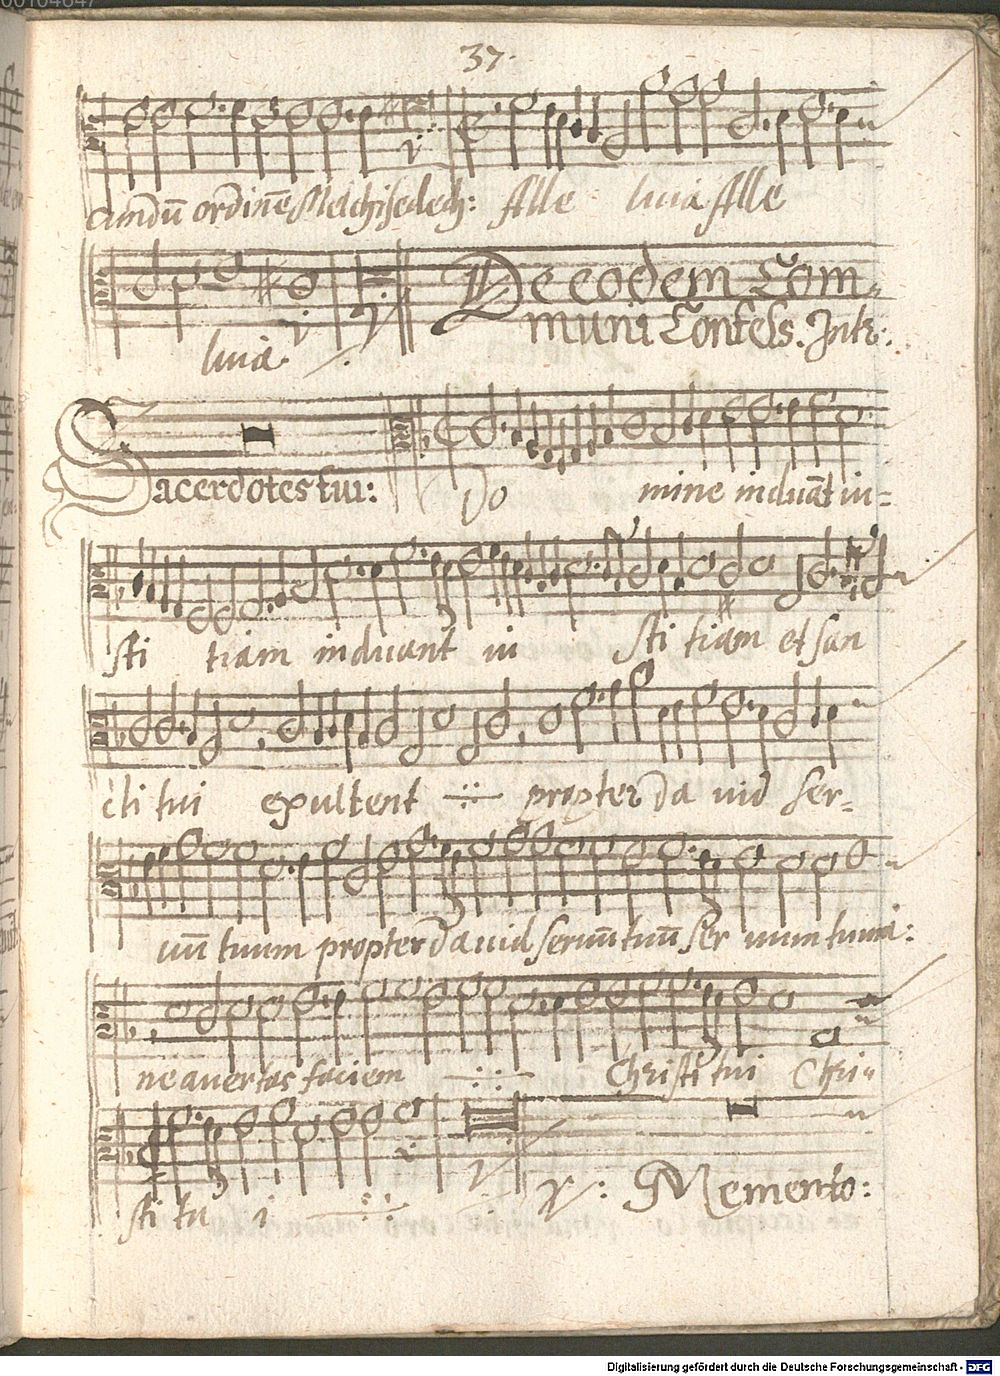 00104647
37.
cundū ordinē Melchisedech: Alle luia Alle
luia.
De eodem Com=
muni Confess. Intr:
Sacerdotes tui: Do mine induāt iu=
sti tiam induant iu sti tiam et san
cti tui exultent propter Da uid ser=
uū tuum propter Dauid seruū tuū ser uum tuum:
ne avertas faciem Christi tui Chri=
sti tu i
℣: Memento:
Digitalisierung gefördert durch die Deutsche Forschungsgemeinschaft - DFG